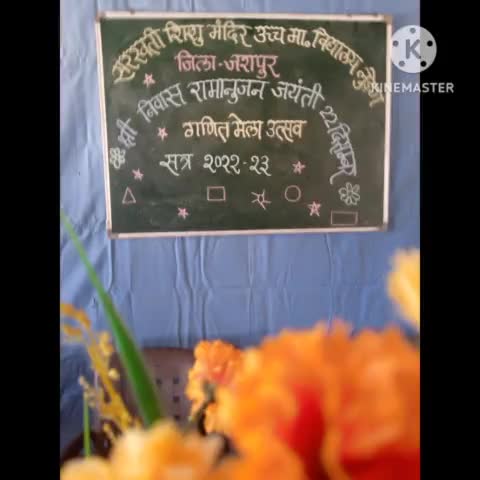 सरस्वती शिशु मंदिर उच्च मा. विद्यालय
जिला-जशपुर
श्री निवास रामानुजन जयंती 22 दिसम्बर
गणित मेला उत्सव
सत्र २०२२-२३
K
KINEMASTER